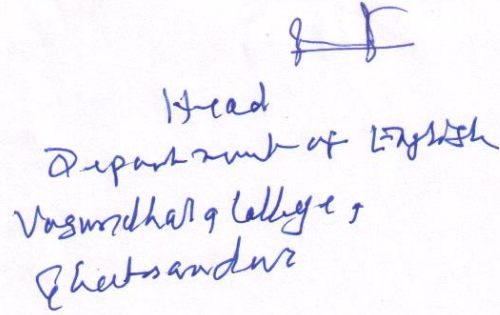 Head
Department of English
Vasundhara College,
Ghatnandur